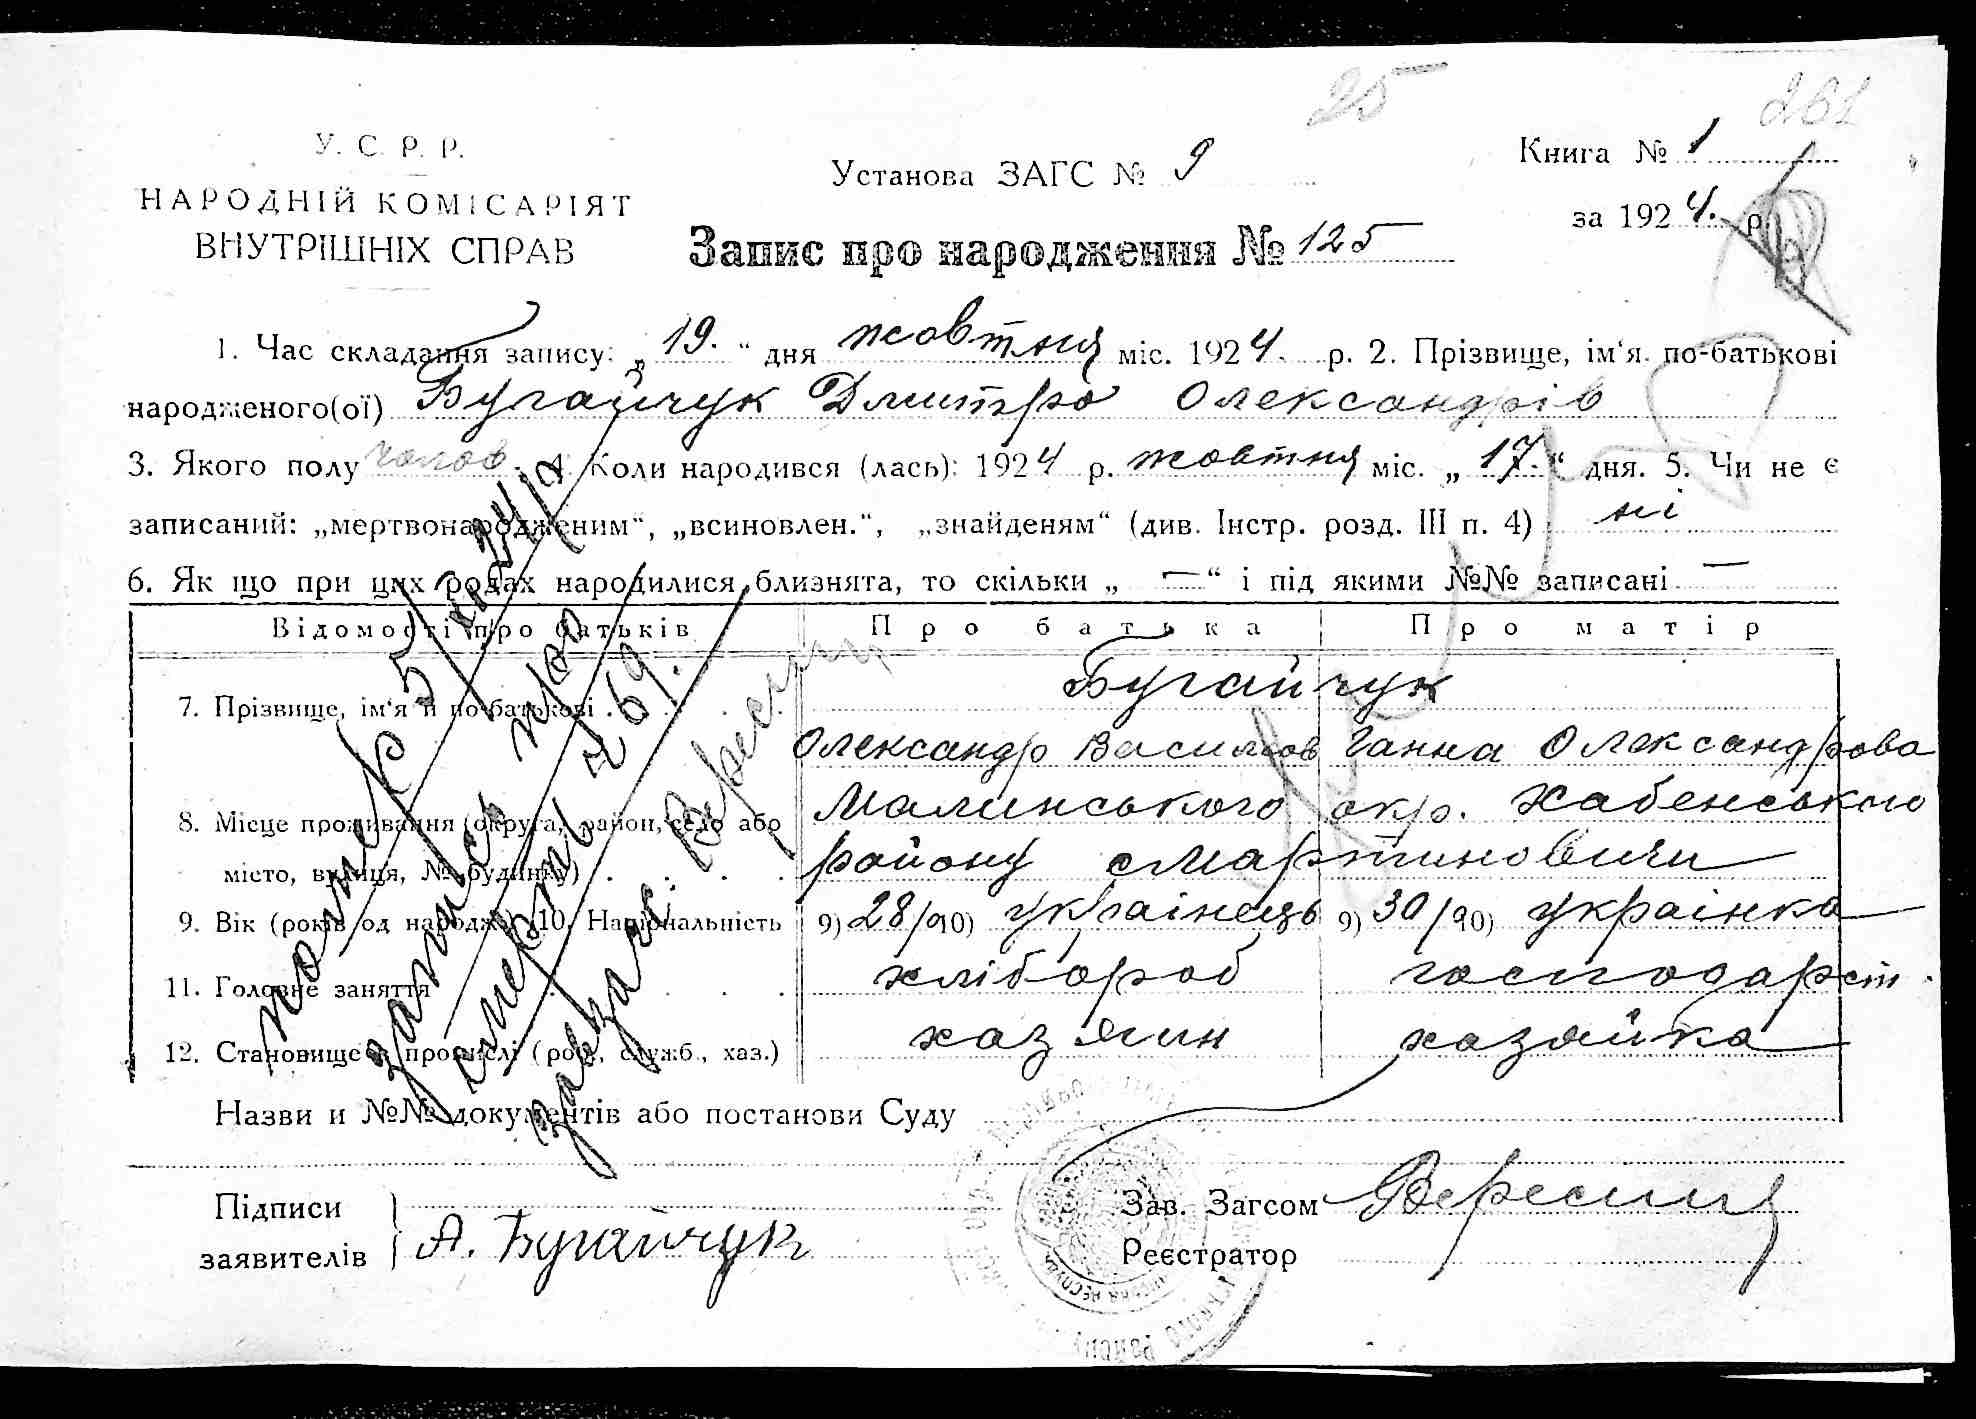 25
261
У. С. Р. Р.
НАРОДНІЙ КОМІСАРІЯТ
ВНУТРІШНІХ СПРАВ
Установа ЗАГС № 9
Книга № 1
за 1924. р.
Запис про народження № 125
1. Час складання запису: „19.“ дня жовтня міс. 1924. р. 2. Прізвище, ім‘я по-батькові
народженого(ої) Бугайчук Дмитро Олександрів
3. Якого полу чолов. 4. Коли народився (лась): 1924 р. жовтня міс. „17.“ дня. 5. Чи не є
записаний: „мертвонародженим“, „всиновлен.“, „знайденям“ (див. Інстр. розд. III п. 4) ні
6. Як що при цих родах народилися близнята, то скільки „—“ і під якими №№ записані —
Відомості про батьків Про батька Про матір
7. Прізвище, ім‘я й по-батькові . . . . Бугайчук
Олександр Василіов Ганна Олександрова
8. Місце проживання (округа, район, село або Малинського окр. Хабенського
місто, вулиця, № будинку) . . . . району с Мартиновичи
9. Вік (років од народж.) 10. Національність 9) 28/ 10) українець 9) 30/ 10) українка
11. Головне заняття . . . . хлібороб господарст.
12. Становище в промислі (роб., служб., хаз.) хазяин хазяйка
Назви и №№ документів або постанови Суду
помер 5/ 24/р
запись про
смерть № 69.
завзагс Вересич
Підписи
заявителів } А. Бугайчук
Зав. Загсом
Реєстратор